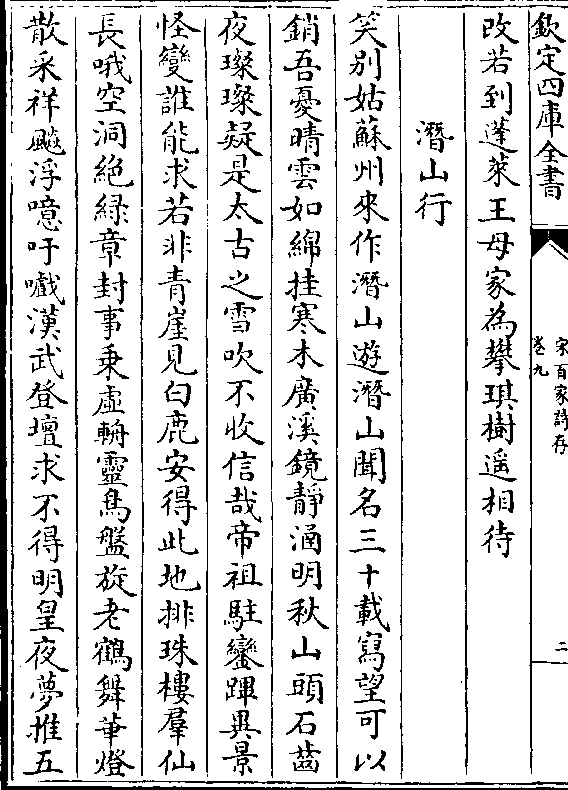 欽定四庫全書
宋百家詩存
卷九
二
改若到蓬萊王母家為攀琪樹遥相待
潛山行
笑别姑蘇州來作潛山遊潛山聞名三十載寫望可以
銷吾憂晴雲如綿挂寒木廣溪鏡静涵明秋山頭石齒
夜璨璨疑是太古之雪吹不收信哉帝祖駐鑾蹕異景
怪變誰能求若非青崖見白鹿安得此地排珠樓羣仙
長哦空洞絶綠章封事乗虛輈靈鳥盤旋老鶴舞華燈
散采祥飈浮噫吁嚱漢武登壇求不得明皇夜夢推五